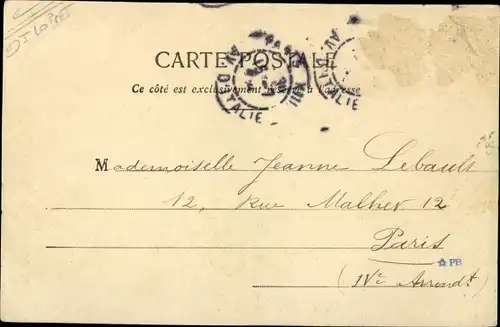 CARTE POSTALE
Ce côté est exclusivement réservé à l'adresse
PARIS XIII
AV. D'ITALIE
AV. D'ITALIE
Mademoiselle Jeanne Lebault
12, Rue Malher 12
Paris
PB
(IVe Arrondt)